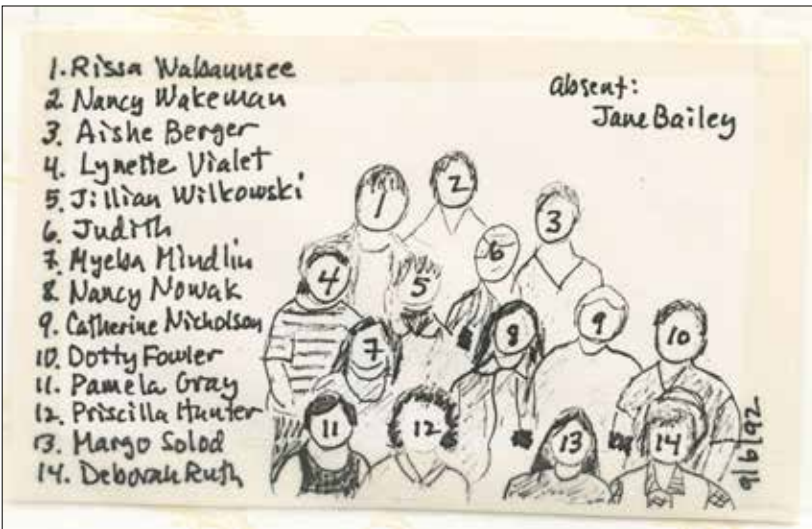 1. Rissa Wabaunsee
2 Nancy Wakeman
3. Aishe Berger
4. Lynette Vialet
5. Jillian Wilkowski
6. Judith
7. Myeba Mindlin
8. Nancy Nowak
9. Catherine Nicholson
10. Dotty Fowler
11. Pamela Gray
12. Priscilla Hunter
13. Margo Solod
14. Deborah Ruth
absent:
Jane Bailey
1
2
3
4
5
6
7
8
9
10
11
12
13
14
9/6/92